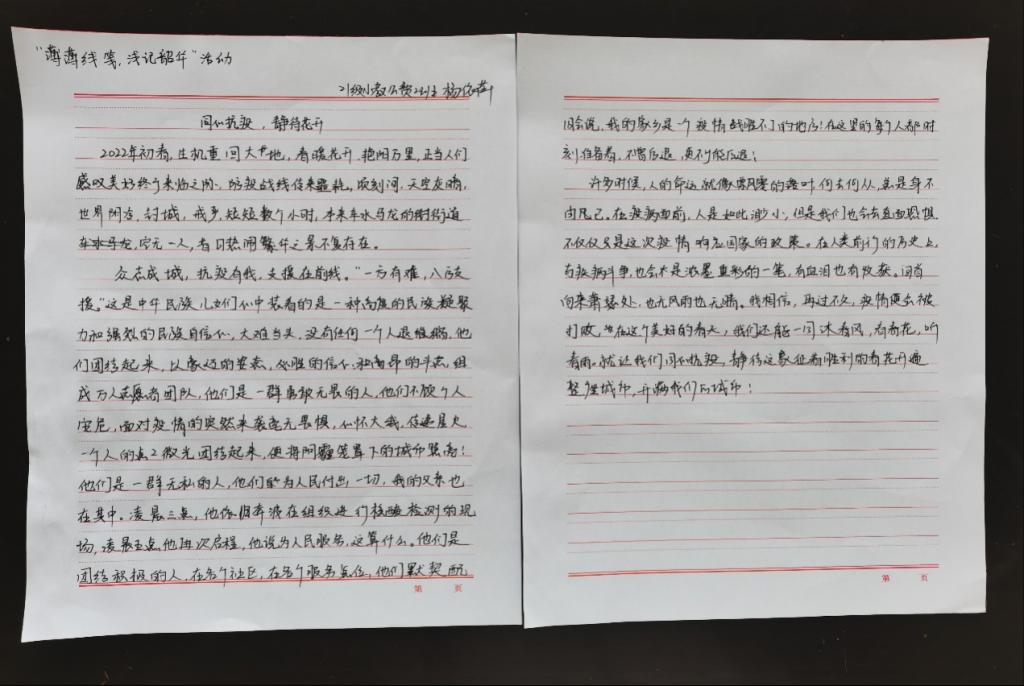 “薄薄线笺，浅记韶华”活动
21级小教公费2班
同心抗疫，静待花开
2022年初春，生机重回大地，春暖花开，艳阳万里，正当人们
感叹美好终于来临之际，防疫战线传来噩耗。顷刻间，天空灰暗，
世界阴冷，封城，戒严，短短数个小时，本来车水马龙的街道
空无一人，春日热闹繁华之景不复存在。
众志成城，抗疫有我，支援在前线。“一方有难，八方支
援。”这是中华民族儿女们心中装着的是一种高度的民族凝聚
力和强烈的民族自信心，大难当头，没有任何一个人退缩，他
们团结起来，以豪迈的姿态，必胜的信心和高昂的斗志，组
成万人志愿者团队，他们是一群勇敢无畏的人，他们不顾个人
安危，面对疫情的突然来袭毫无畏惧，心怀大我，传递星火，
一个人的点点微光团结起来，便将阴霾笼罩下的城市照亮！
他们是一群无私的人，他们能为人民付出一切，我的父亲也
在其中。凌晨三点，他依旧奔波在组织进行核酸检测的现
场，凌晨五点他再次启程，他说为人民服务，这算什么。他们是
团结积极的人，在各个社区，在各个服务点位，他们默契配
合说，我的家乡是一个疫情战胜不了的地方！在这里的每个人都时
刻准备着，不曾后退，更不能后退！
许多时候，人的命运就像飘零的落叶何去何从，总是身不
由己。在疫病面前，人是如此渺小，但是我们也会去直面恐惧
不仅仅只是这次疫情响应国家的政策。在人类前行的历史上，
与疫病斗争，也会是浓墨重彩的一笔，有血泪也有收获。回首
向来萧瑟处，也无风雨也无晴。我相信，再过不久，疫情便会被
打败，在这个美好的春天，我们还能一同沐春风，看春花，听
春雨。就让我们同心抗疫，静待这象征着胜利的春花开遍
整座城市，开满我们的城市！
第 页
第 页